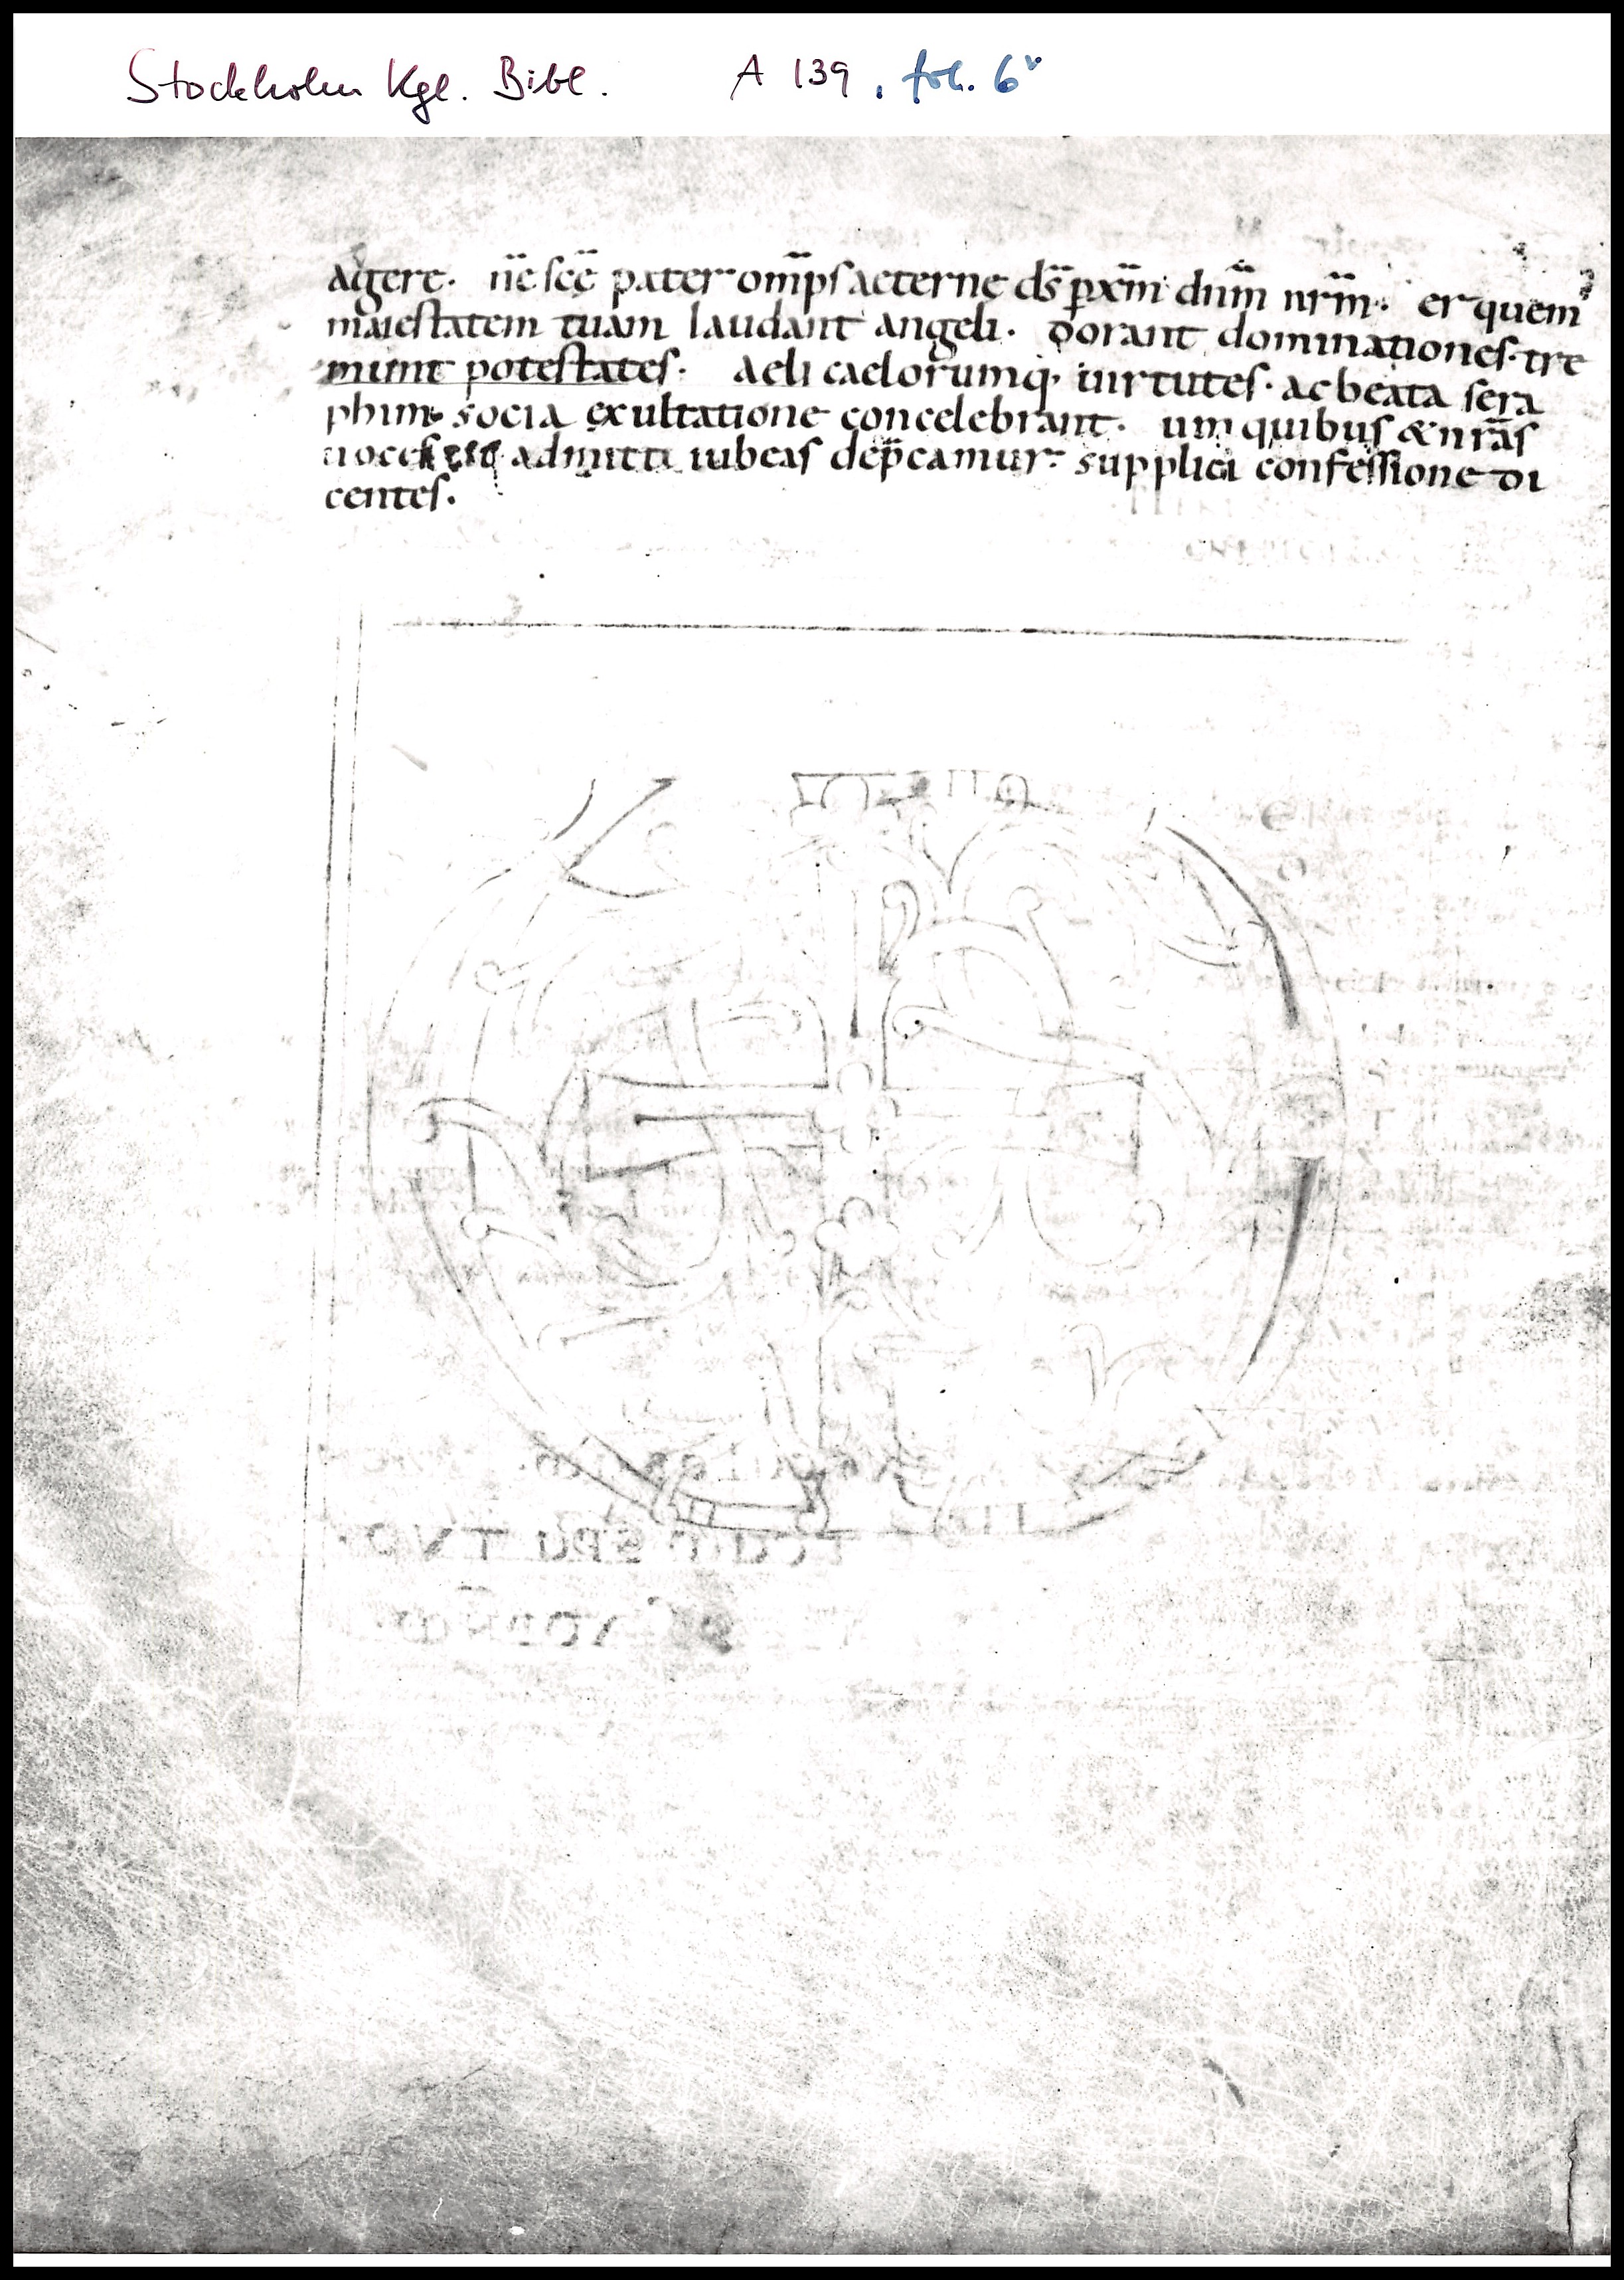 Stockholm Kgl. Bibl. A 139, fol. 6v
agere. n̄e sc̄e pater om̄ps aeterne d̄s p̱ xp̄m dn̄m nr̄m. er quem
maiestatem tuam laudant angeli. dorant dominationes. tre
munt potestates. aeli caelorumq; uirtutes. ac beata sera
phim socia exultatione concelebrant. um quibus & nr̄as
uoces admitti iubeas dep̄camur. supplici confessione di
centes.